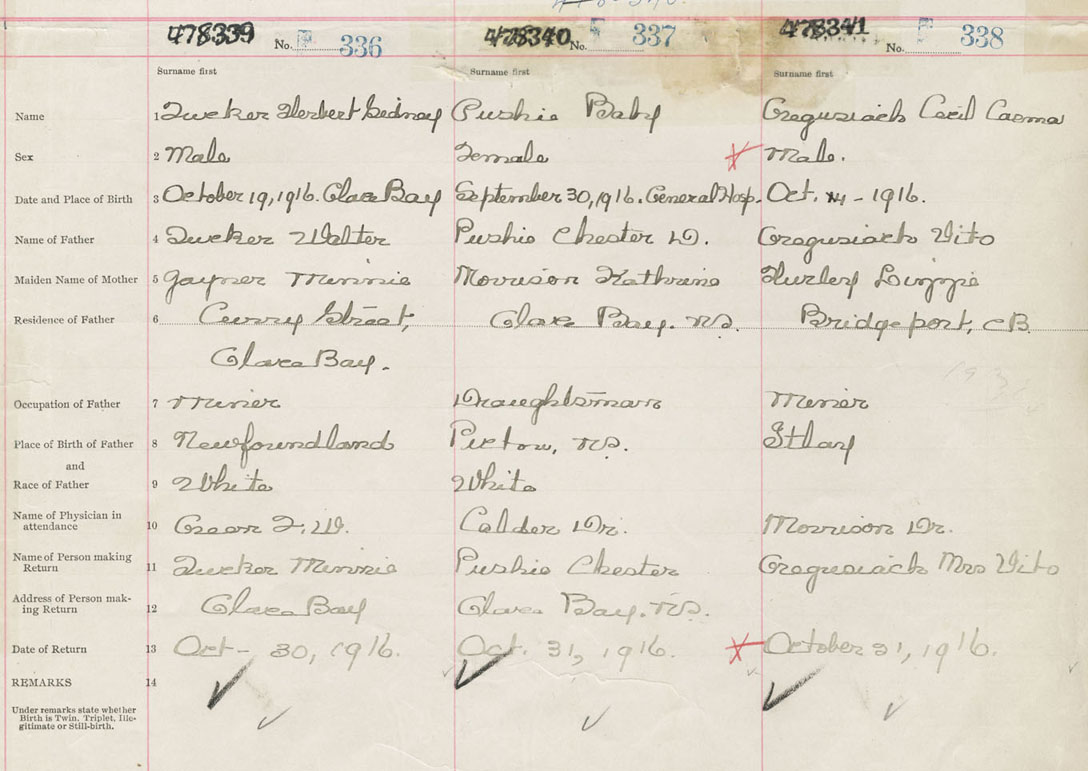 478339 No. 336 478340 No. 337 478341 No. 338
Surname first Surname first Surname first
Name 1 Tucker Herbert Sidney Pushie Baby Cecil
Sex 2 Male Female Male.
Date and Place of Birth 3 October 19, 1916. Glace Bay September 30, 1916. General Hosp. Oct. 14 - 1916.
Name of Father 4 Tucker Walter Pushie Chester D. Vito
Maiden Name of Mother 5 Gayner Minnie Morrison Kathrine Hurley Lizzie
Residence of Father 6 Curry Street, Glace Bay. N.S. Bridgeport, C.B.
Glace Bay.
Occupation of Father 7 Miner Draughtsman Miner
Place of Birth of Father 8 Newfoundland Pictou, N.S. Italy
and
Race of Father 9 White White
Name of Physician in
attendance 10 Green F. W. Calder Dr. Morrison Dr.
Name of Person making
Return 11 Tucker Minnie Pushie Chester Mrs Vito
Address of Person mak-
ing Return 12 Glace Bay Glace Bay. N.S.
Date of Return 13 Oct - 30, 1916. Oct. 31, 1916. October 31, 1916.
REMARKS 14
Under remarks state whether
Birth is Twin, Triplet, Ille-
gitimate or Still-birth.